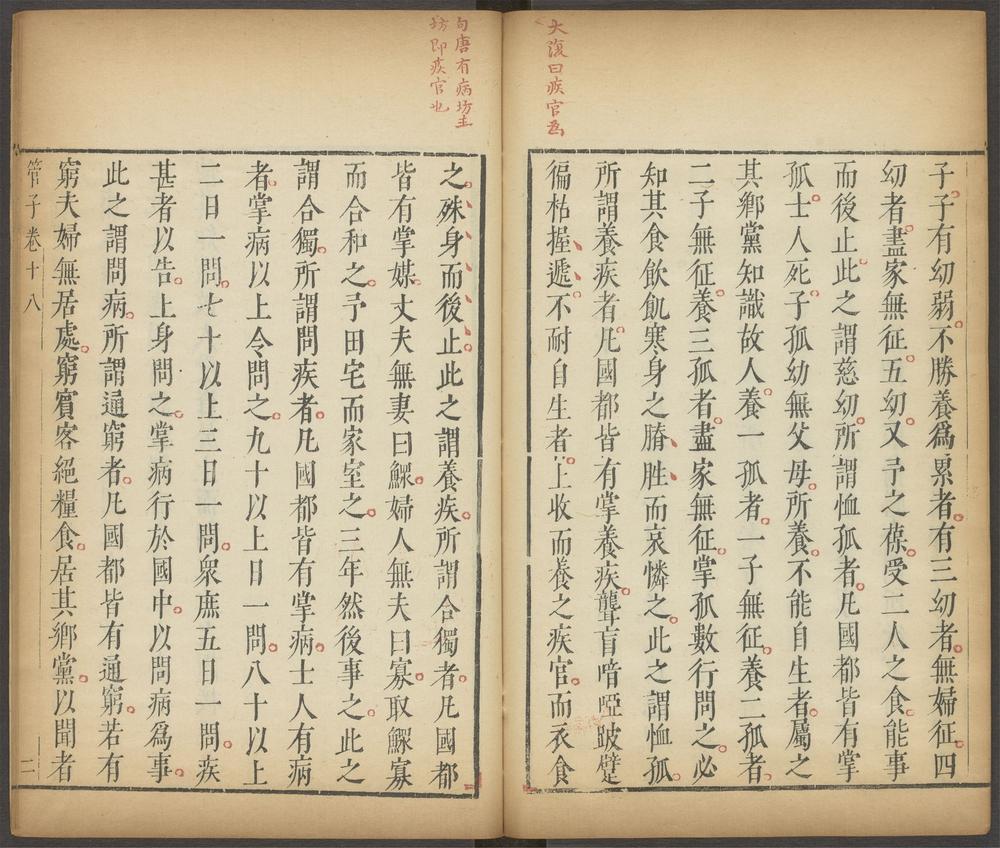 大復曰疾官為
句唐有病坊主
坊即疾官也
子子有幼弱不勝養爲累者有三幼者無婦征四
幼者盡家無征五幼又予之葆受二人之食能事
而後止此之謂慈幼所謂恤孤者凡國都皆有掌
孤士人死子孤幼無父母所養不能自生者屬之
其鄉黨知識故人養一孤者一子無征養二孤者
二子無征養三孤者盡家無征掌孤數行問之必
知其食飲飢寒身之膌胜而哀憐之此之謂恤孤
所謂養疾者凡國都皆有掌養疾聾盲喑啞跛躄
徧枯握遞不耐自生者上收而養之疾官而衣食
之殊身而後止此之謂養疾所謂合獨者凡國都
皆有掌媒丈夫無妻曰鰥婦人無夫曰寡取鰥寡
而合和之予田宅而家室之三年然後事之此之
謂合獨所謂問疾者凡國都皆有掌病士人有病
者掌病以上令問之九十以上日一問八十以上
二日一問七十以上三日一問衆庶五日一問疾
甚者以告上身問之掌病行於國中以問病爲事
此之謂問病所謂通窮者凡國都皆有通窮若有
窮夫婦無居處窮賓客絕糧食居其鄉黨以聞者
管子卷十八
二